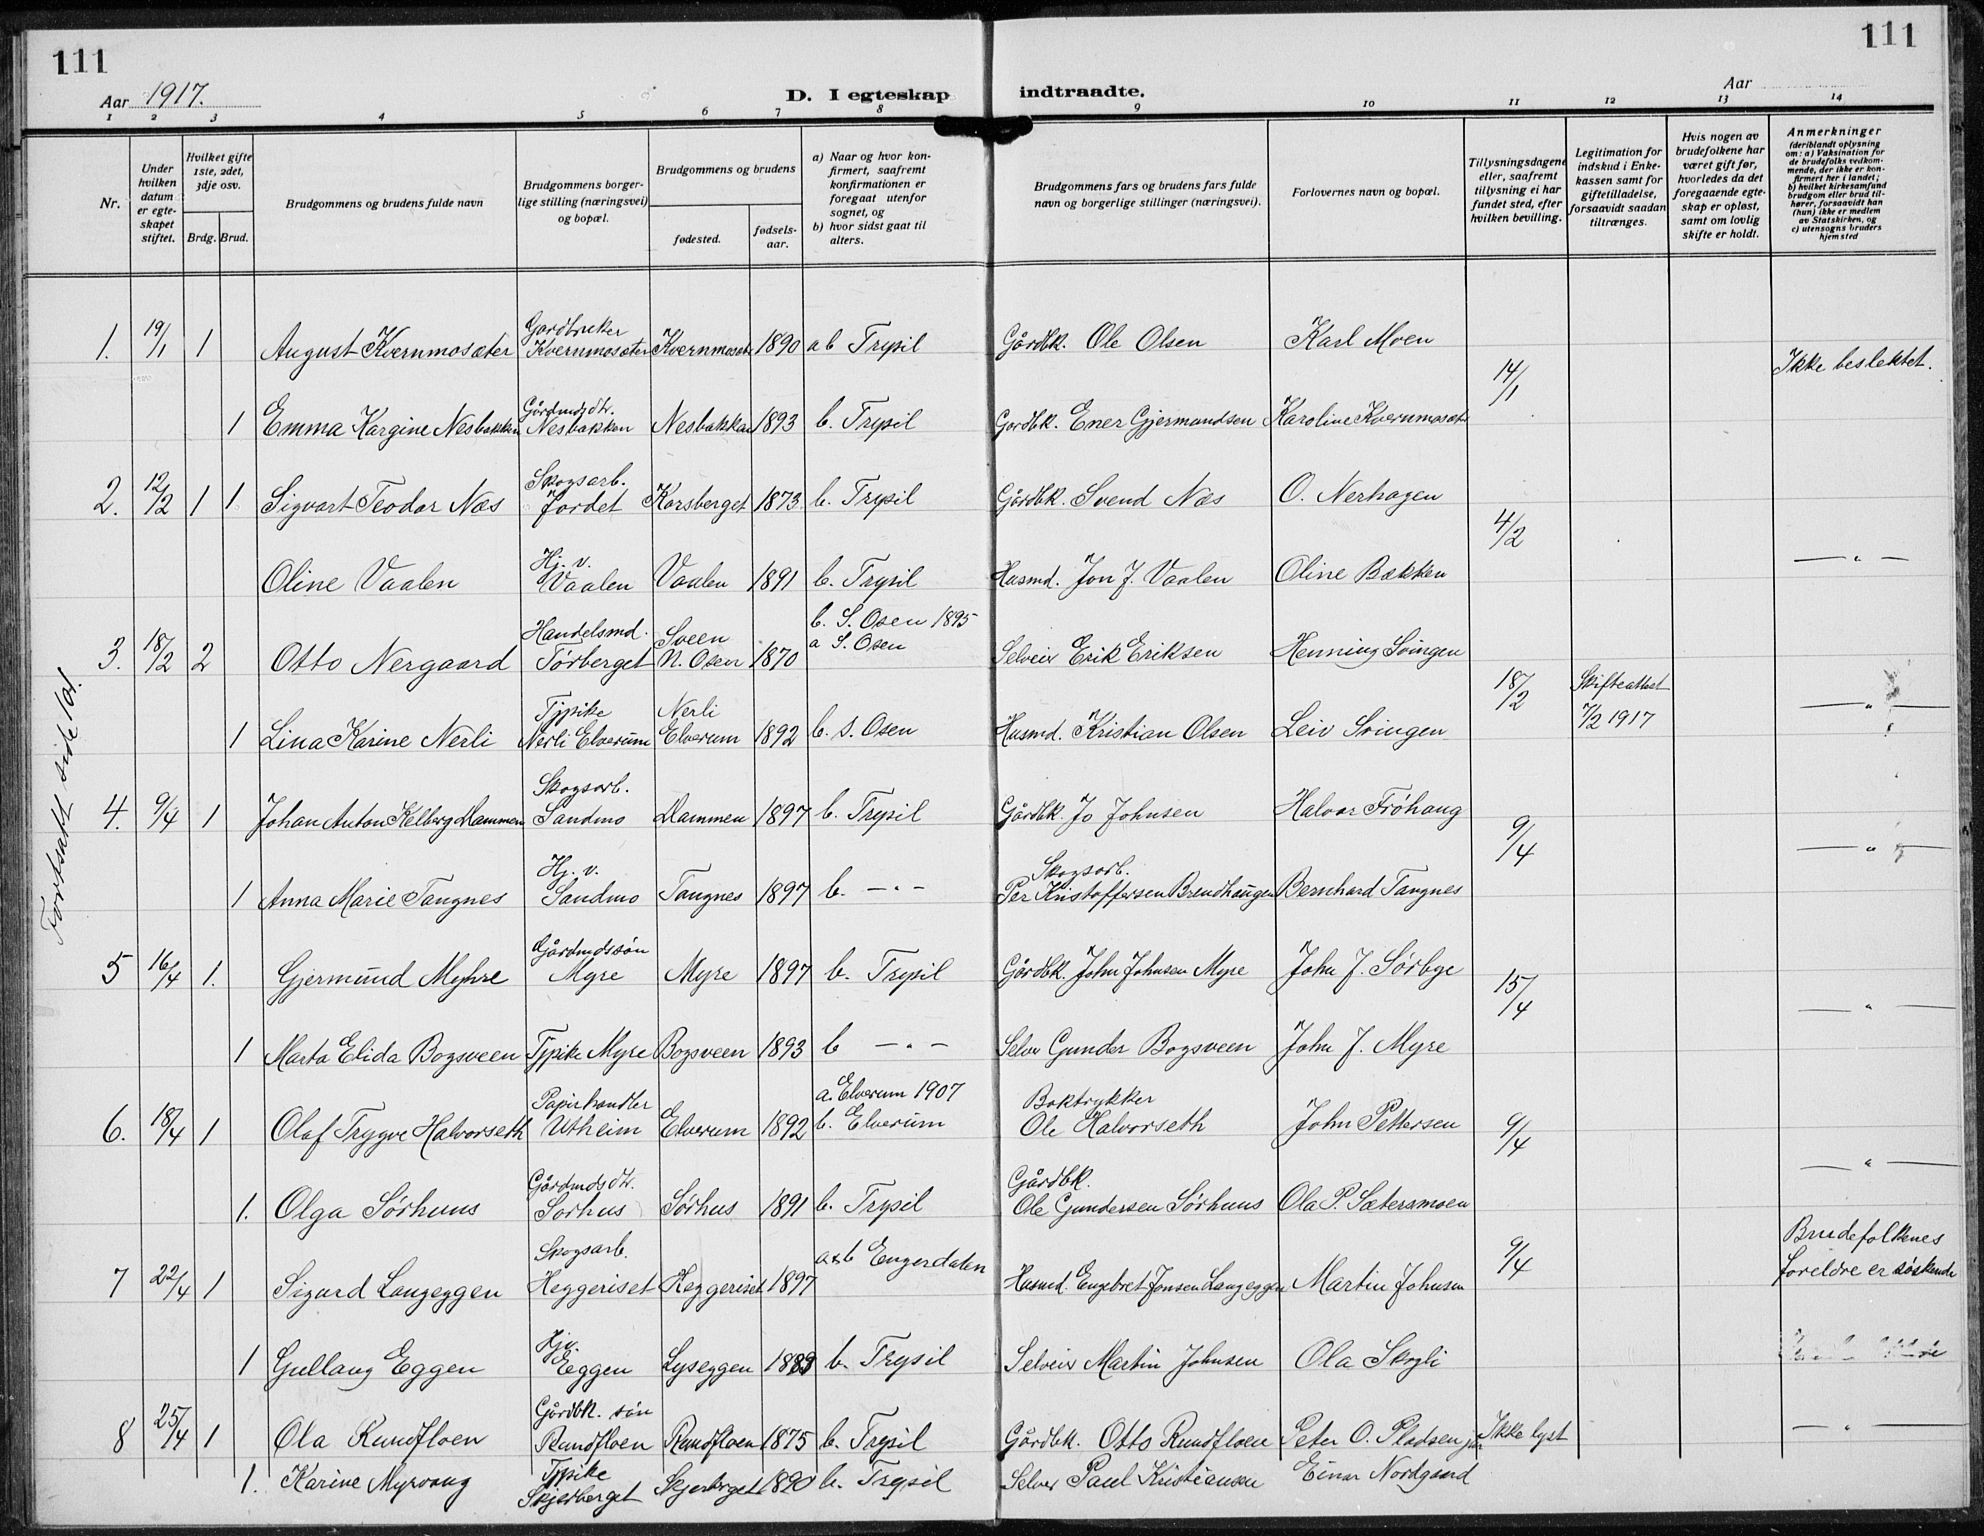 111
111
Aar 1917.
D. I egteskap indtraadte.
Aar
1 2 3 4 5 6 7 8 9 10 11 12 13 14
Nr.
Under hvilken datum er egteskapet stiftet.
Hvilket gifte 1ste, 2det, 3dje osv.
Brdg. Brud.
Brudgommens og brudens fulde navn
Brudgommens borgerlige stilling (næringsvei) og bopæl.
Brudgommens og brudens
fødested.
fødselsaar.
a) Naar og hvor konfirmert, saafremt konfirmationen er foregaat utenfor sognet, og
b) hvor sidst gaat til alters.
Brudgommens fars og brudens fars fulde navn og borgerlige stillinger (næringsvei).
Forlovernes navn og bopæl.
Tillysningsdagene eller, saafremt tillysning ei har fundet sted, efter hvilken bevilling.
Legitimation for indskud i Enkekassen samt for giftetilladelse, forsaavidt saadan tiltrænges.
Hvis nogen av brudefolkene har været gift før, hvorledes da det foregaaende egteskap er opløst, samt om lovlig skifte er holdt.
Anmerkninger
(deriblandt oplysning om: a) Vaksination for de brudefolks vedkommende, der ikke er konfirmert her i landet; b) hvilket kirkesamfund brudgom eller brud tilhører, forsaavidt han (hun) ikke er medlem av Statskirken, og c) utensogns bruders hjemsted
1. 19/1 1 August Kvernmosæter Gardbruker Kvernmosæter Kvernmosæt 1890 ab Trysil Gårdbk. Ole Olsen Karl Moen 14/1 Ikke beslektet.
1 Emma Kargine Nesbakken Gårdmdsdtr. Nesbakken Nesbakkan 1893 b. Trysil Gardbk. Ener Gjermundsen Karoline Kvernmosæter
2. 12/2 1 1 Sigvart Teodor Næs Skogsarb. Jordet Korsberget 1873 b. Trysil Gårdbk. Svend Næs O. Nerhagen 4/2
Oline Vaalen Hj. v. Vaalen Vaalen 1891 b. Trysil Husmd. Jon J. Vaalen Oline Bækken — " —
3. 18/2 2 Otto Nergaard Handelsmd. Tørberget Sveen N. Osen 1870 b. S. Osen 1895 a S. Osen Selveier Erik Eriksen Henning Svingen 18/2 Skifteattest 7/2 1917
1 Lina Karine Nerli Tjpike Nerli Elverum Nerli Elverum 1892 b. S. Osen Husmd. Kristian Olsen Leiv Svingen — " —
4. 9/4 1 Johan Anton Kelberg Dammen Skogsarb. Sandmo Dammen 1897 b. Trysil Gårdbk. Jo Johnsen Halvor Frøhaug 9/4
1 Anna Marie Tangnes Hj. v. Sandmo Tangnes 1897 b. — " — Skogsarb. Per Kristoffersen Brendhaugen Bernhard Tangnes — " —
5 16/4 1. Gjermund Myhre Gårdmdssøn Myre Myre 1897 b. Trysil Gårdbk. John Johnsen Myre John J. Sørbye 15/4
1 Marta Elida Bogsveen Tjpike Myre Bogsveen 1893 b — " — Selv. Gunder Bogsveen John J. Myre — " —
6. 18/4 1 Olaf Trygve Halvorseth Papirhandler Utheim Elverum 1892 a. Elverum 1907 b. Elverum Boktrykker Ole Halvorseth John Pettersen 9/4
1. Olga Sørhuus Gårdmdsdtr. Sørhus Sørhus 1891 b. Trysil Gårdbk. Ole Gundersen Sørhuus Ola P. Sætersmoen — " —
7 22/4 1 Sigurd Langeggen Skogsarb. Heggeriset Heggeriset 1897 a&b Engerdalen Husmd. Engebret Jonsen Langeggen Martin Johnsen 9/4 Brudefolkenes foreldre er søskende
1 Gullaug Eggen Hjv. Eggen Lyseggen 1889 b. Trysil Selveier Martin Johnsen Ola Skogli
8 25/4 1 Ola Rundfloen Gårdbk. søn Rundfloen Rundfloen 1875 b. Trysil Gårdbk. Otto Rundfloen Peter O. Pladsen jun Ikke lyst — " —
1. Karine Myrvang Tjpike Skjerberget Skjerberget 1890 b. Trysil Selveier Paul Kristiansen Einar Nordgaard
Fortsatt side 101.